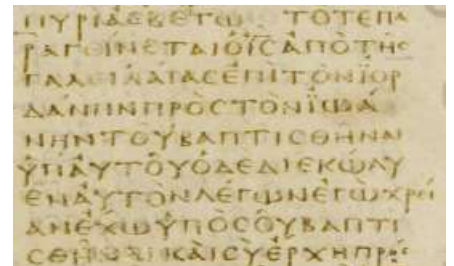 ΠΥΡΙΑϹΒΕϹΤΩ ΤΟΤΕΠΑ
ΡΑΓΕΙΝΕΤΑΙΟΙϹΑΠΟΤΗϹ
ΓΑΛΕΙΛΑΙΑϹΕΠΙΤΟΝΪΟΡ
ΔΑΝΗΝΠΡΟϹΤΟΝΪΩΑ
ΝΗΝΤΟΥΒΑΠΤΙϹΘΗΝΑΙ
ΥΠΑΥΤΟΥΟΔΕΔΙΕΚΩΛΥ
ΕΝΑΥΤΟΝΛΕΓΩΝΕΓΩΧΡΕΙ
ΑΝΕΧΩΫΠΟϹΟΥΒΑΠΤΙ
ϹΘΗΝΑΙΚΑΙϹΥΕΡΧΗΠΡΟϹ